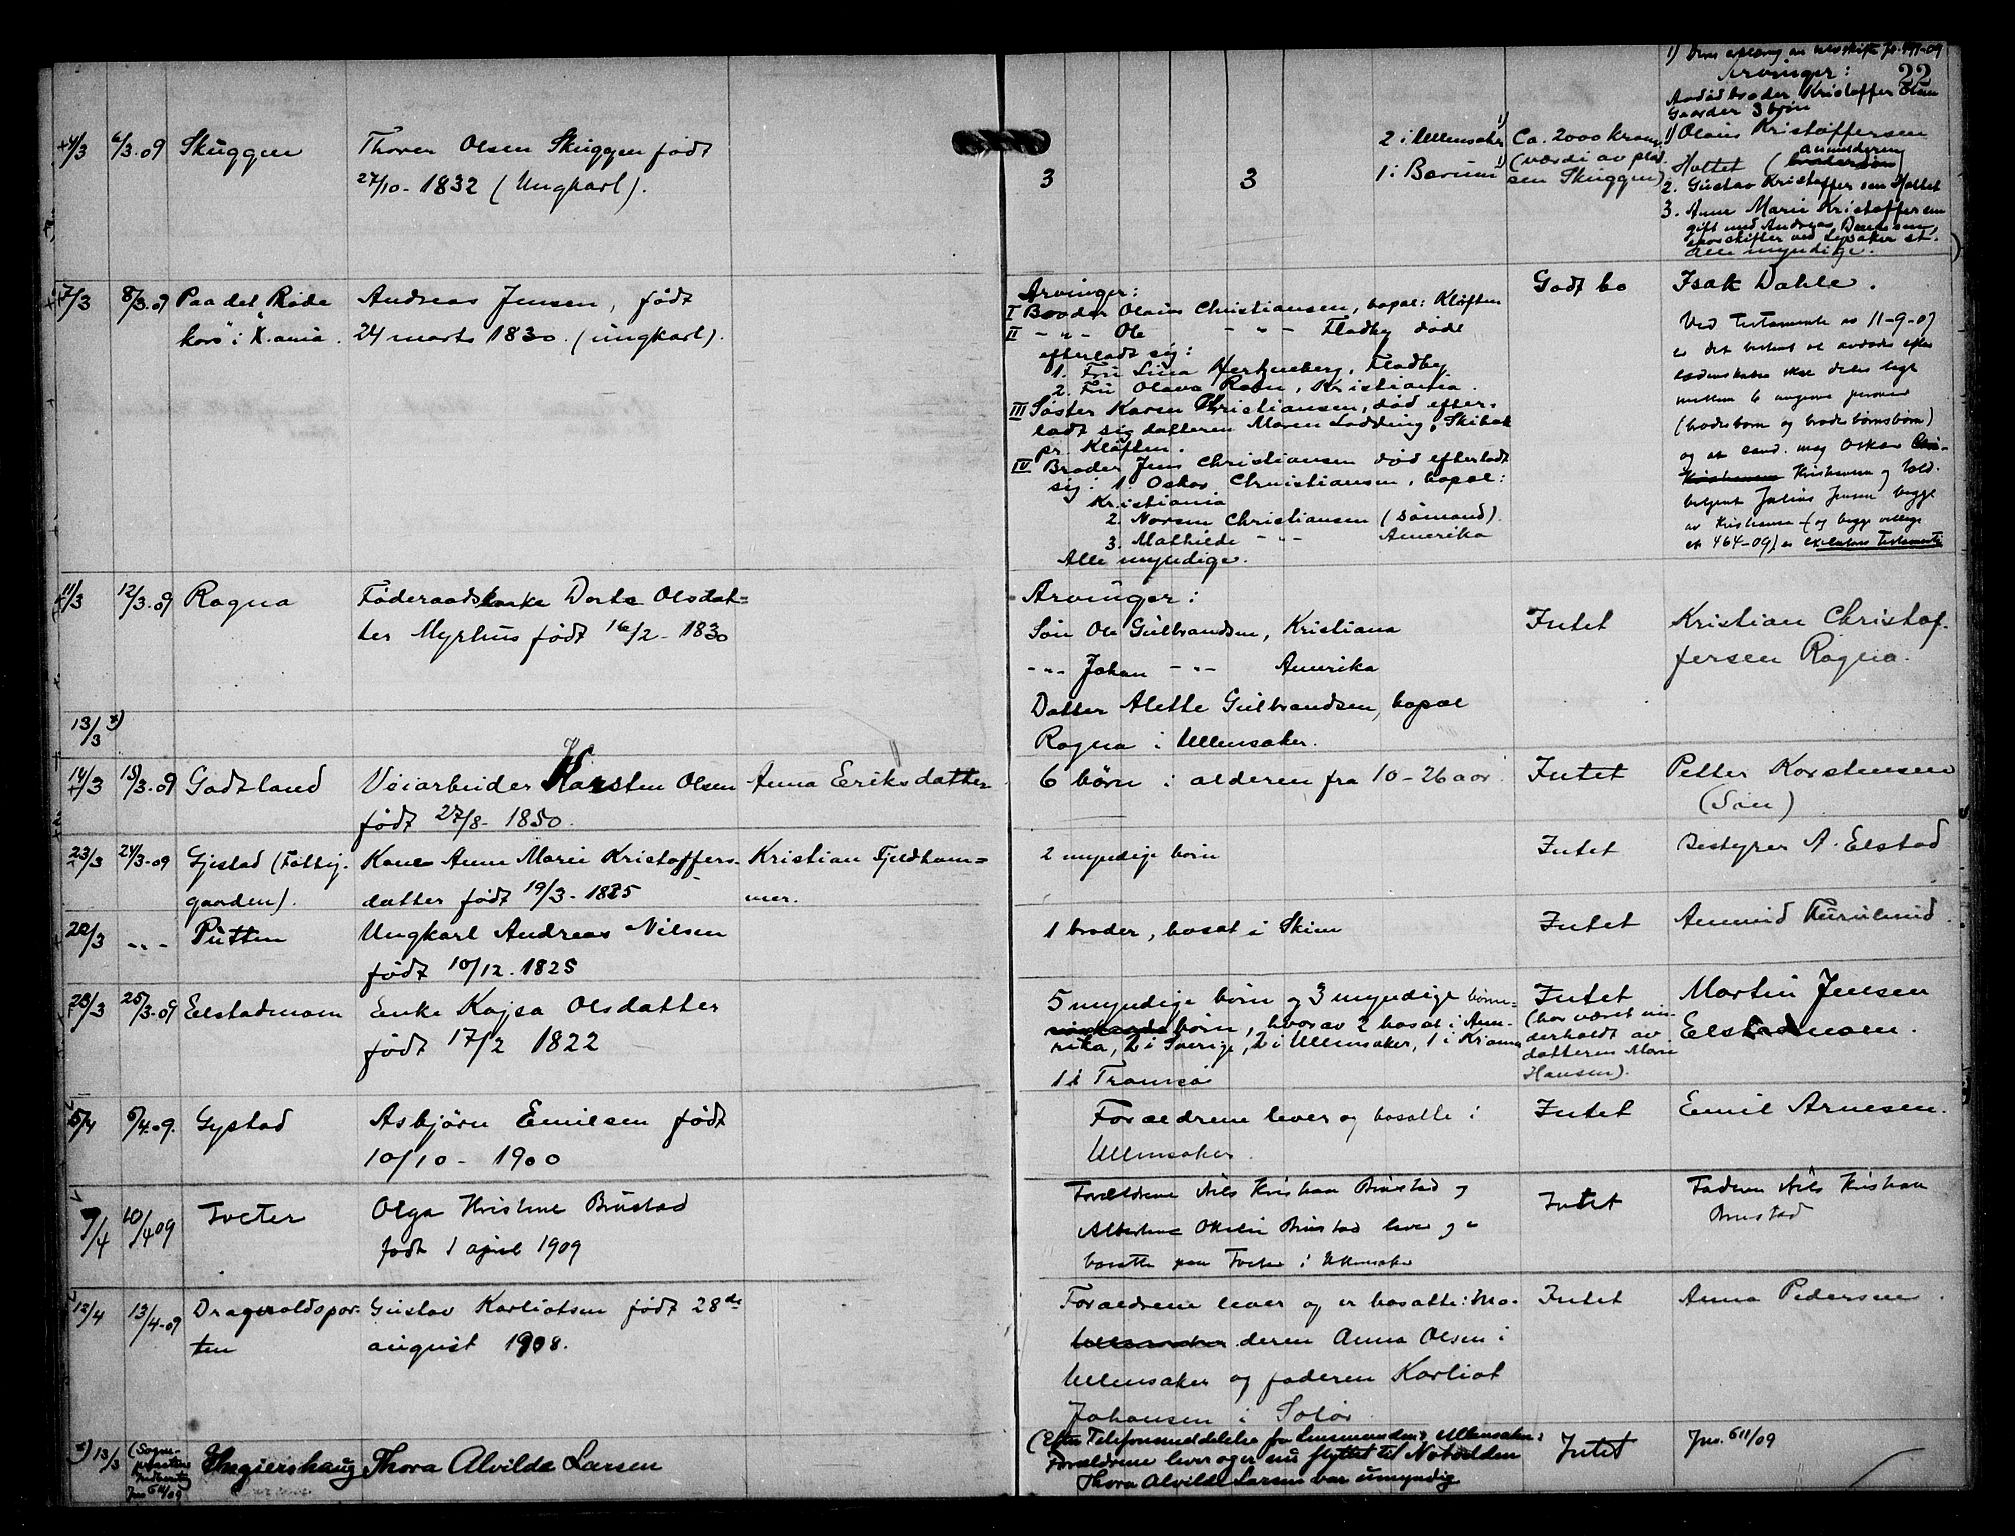 1) Deres
Arvinger:
22
Avdød broder Kristoffer Olsen
Gaarder 3 børn
4/3 6/3.09 Skuggen Thorer Olsen Skuggen født 2 i Ullensaker 1) Ca. 2000 kroner 1) Olaus Kristoffersen
27/10-1832 (Ungkarl). 3 3 1 i Bærum 1) (værdi av plassen Skuggen) Holtet (anmelderen)
2. Gustav Kristoffersen Holtet
3. Anne Marie Kristoffersen
gift med Andreas
ved Lysaker st.
Alle myndige.
7/3 8/3.09 Paa det Røde Andreas Jensen, født Arvinger: Godt bo Isak Dahle.
kors i X.ania. 24 marts 1830. (ungkarl).
I Broder Olaus Christiansen, bopæl: Kløften
II - " - Ole - " - Fladby død
efterladt sig:
1. Fru Lina Hertzenberg, Fladby
2. Fru Olava Ravn, Kristiania.
III Søster Karen Christiansen, død efter-
ladt sig datteren Maren Lodding, Skibak
pr. Kløften.
IV Broder Jens Christiansen død efterladt
sig: 1. Oskar Christiansen, bopæl:
Kristiania
2. Norsen Christiansen (sømand).
3. Mathilde - " - Amerika
Alle myndige.
Ved Testamente av 11-9-07
er det bestemt at avdødes efter
ladenskaber skal deles ligt
mellem 6 angivne personer
(broderbørn og broderbørnsbørn)
og at cand. mag Oskar
Kristiansen og told-
betjent Julius Jensen begge
av Kristiania (og begge villige
cfr 464-09) er executors Testamenti
11/3 12/3.09 Ragna Føderaadsenke Dorte Olsdat= Arvinger:
ter Myrhus født 16/2-1830 Søn Ole Gulbrandsen, Kristiania Intet Kristian Christof-
- " - Johan - " - Amerika fersen Ragna.
Datter Alette Gulbrandsen, bopæl
13/3 x) Ragna i Ullensaker.
14/3 15/3.09 Godtland Veiarbeider Karsten Olsen Anna Eriksdatter 6 børn i alderen fra 10-26 aar. Intet Petter Karstensen
født 27/8-1850. (Søn)
23/3 24/3-09 Gjestad (Fattig- Kone Anne Marie Kristoffers- Kristian Fjeldham= 2 myndige børn Intet Bestyrer A. Elstad
gaarden). datter født 19/3-1825 mer.
20/3 - " - Putten Ungkarl Andreas Nilsen 1 broder, bosat i Skien Intet Amund Furulund.
født 10/12.1825
23/3 25/3-09 Elstadmoen Enke Kajsa Olsdatter 5 myndige børn og 3 myndige børne= Intet Martin Jensen
født 17/2 1822 børn, hvorav 2 bosat i Ame- (har været un- Elstadmoen.
rika, 2 i Sverige, 2 i Ullensaker, 1 i Kr.ania derholdt av
1 i Tromsø datteren Marie
Hansen).
5/4 6/4.09. Gystad Asbjørn Emilsen født Forældrene lever og bosatte i Intet Emil Arnesen.
10/10-1900 Ullensaker.
7/4 10/4 09 Tveter Olga Kristine Brustad Forældrene Nils Kristian Brustad og Intet Faderen Nils Kristian
født 1 april 1909 Albertine Otilie Brustad lever og er Brustad
bosatte paa Tveter i Ullensaker
12/4 13/4-09 Dragvoldspor- Gustav Karliotsen født 28de Forældrene lever og er bosatte: Mo- Intet Anna Pedersen.
ten august 1908. deren Anna Olsen i
Ullensaker og faderen Karliot
Johansen i Solør.
x) 13/3 (Sogne- Thora Alvilda Larsen (Efter Telefonmeddelelse fra Lensmanden i Ullensaker: Intet Jno. 611/09
presten Forældrene lever og er nu flyttet til Notodden
Jno 611/09 Thora Alvilda Larsen var umyndig